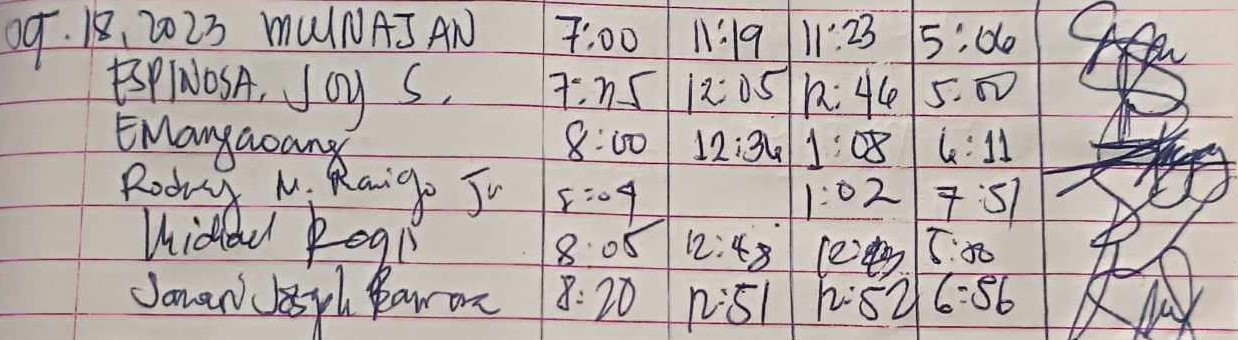 oct. 18, 2023 MUNAJAN 7:00 11:19 11:23 5:06
ESPINOSA, JOY S. 7:25 12:05 12:46 5:00
EMangaoang 8:00 12:36 1:08 6:11
Rodney M. Raigo Jr 1:02 7:51
Michael 8:05 12:48 5:00
Joseph 8:20 12:51 12:52 6:56